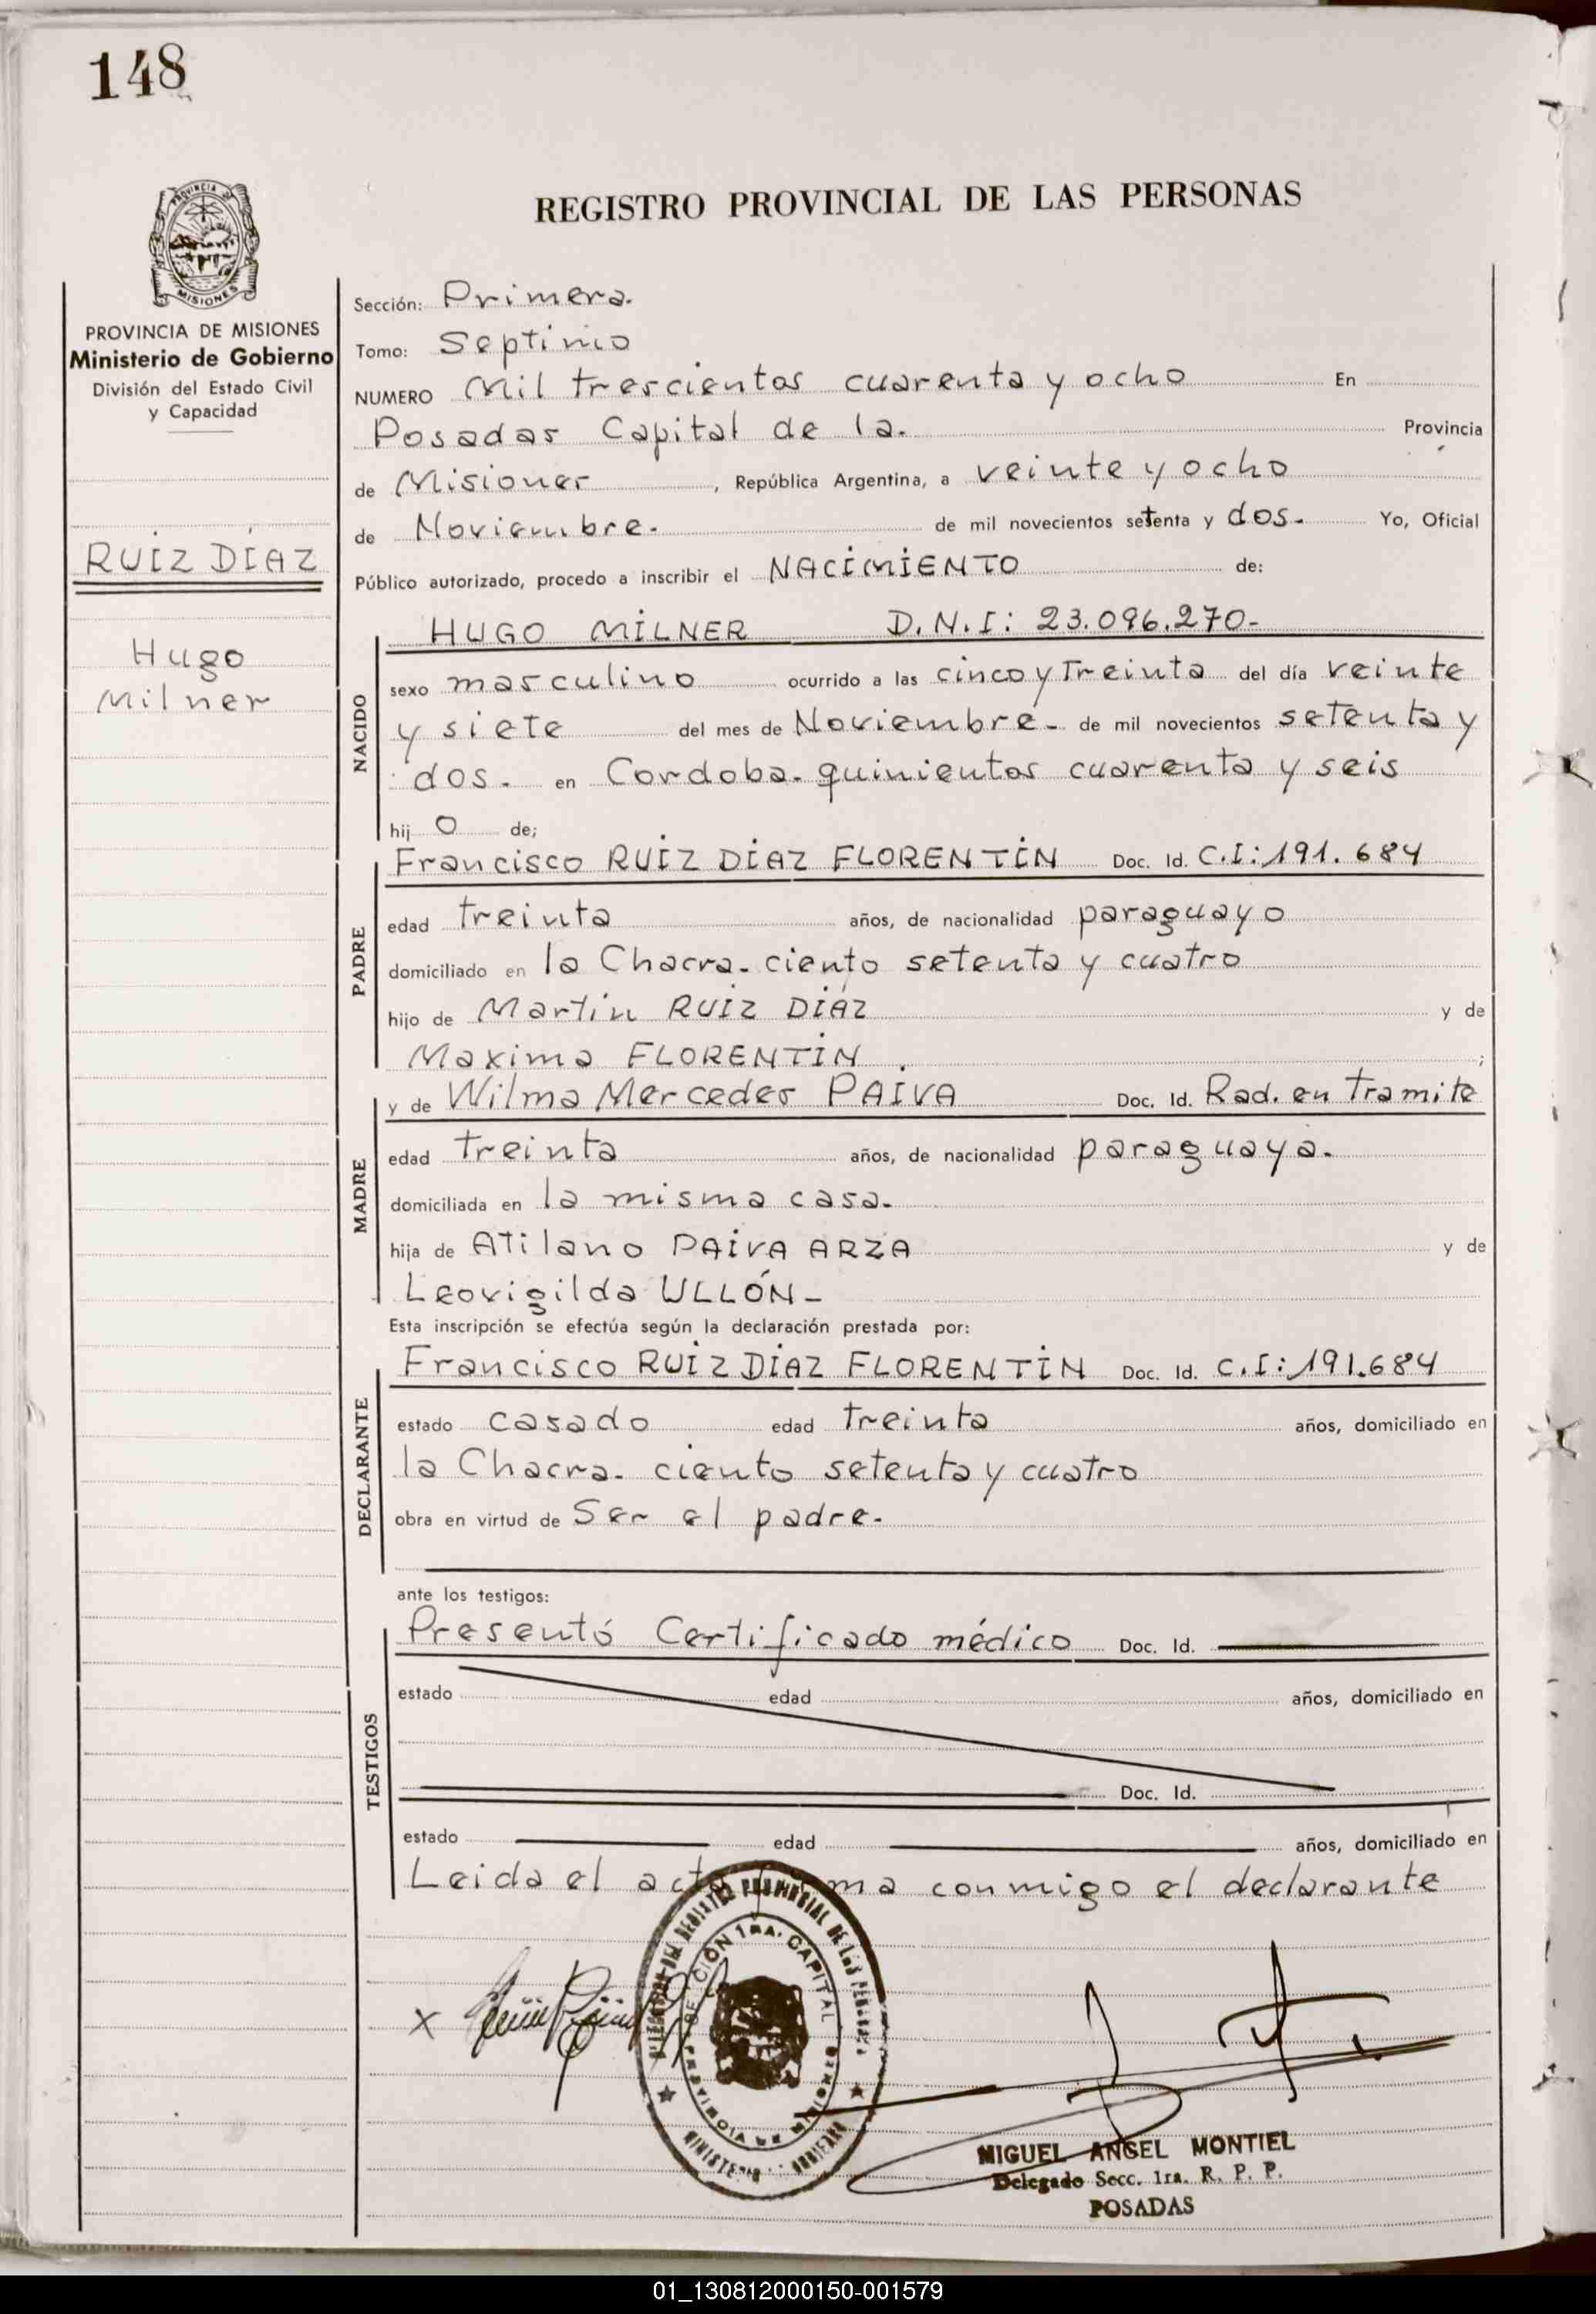 148
PROVINCIA DE MISIONES
Ministerio de Gobierno
División del Estado Civil
y Capacidad
RUÍZ DÍAZ
Hugo
Milner
REGISTRO PROVINCIAL DE LAS PERSONAS
Sección: Primera.
Tomo: Septimo
NUMERO Mil trescientos cuarenta y ocho En
Posadas Capital de la. Provincia
de Misiones, República Argentina, a veinte y ocho
de Noviembre. de mil novecientos setenta y dos. Yo, Oficial
Público autorizado, procedo a inscribir el NACIMIENTO de:
NACIDO
HUGO MILNER D.N.I: 23.096.270-
sexo masculino ocurrido a las cinco y Treinta del día veinte
y siete del mes de Noviembre. de mil novecientos setenta y
dos. en Cordoba. quinientos cuarenta y seis
hij o de;
PADRE
Francisco RUIZ DIAZ FLORENTIN Doc. Id. C.I: 191.684
edad treinta años, de nacionalidad paraguayo
domiciliado en la Chacra. ciento setenta y cuatro
hijo de Martín RUIZ DIAZ y de
Maxima FLORENTIN.;
MADRE
y de Wilma Mercedes PAIVA Doc. Id. Rad. en Tramite
edad treinta años, de nacionalidad paraguaya.
domiciliada en la misma casa.
hija de Atilano PAIVA ARZA y de
Leovigilda ULLÓN-
Esta inscripción se efectúa según la declaración prestada por:
DECLARANTE
Francisco RUIZ DIAZ FLORENTIN Doc. Id. C.I: 191.684
estado casado edad treinta años, domiciliado en
la Chacra. ciento setenta y cuatro
obra en virtud de Ser el padre.
ante los testigos:
TESTIGOS
Presentó Certificado médico Doc. Id.
estado edad años, domiciliado en
Doc. Id.
estado edad años, domiciliado en
Leida el acta firma conmigo el declarante
X
MIGUEL ANGEL MONTIEL
Delegado Secc. 1ra. R. P. P.
POSADAS
01_130812000150-001579